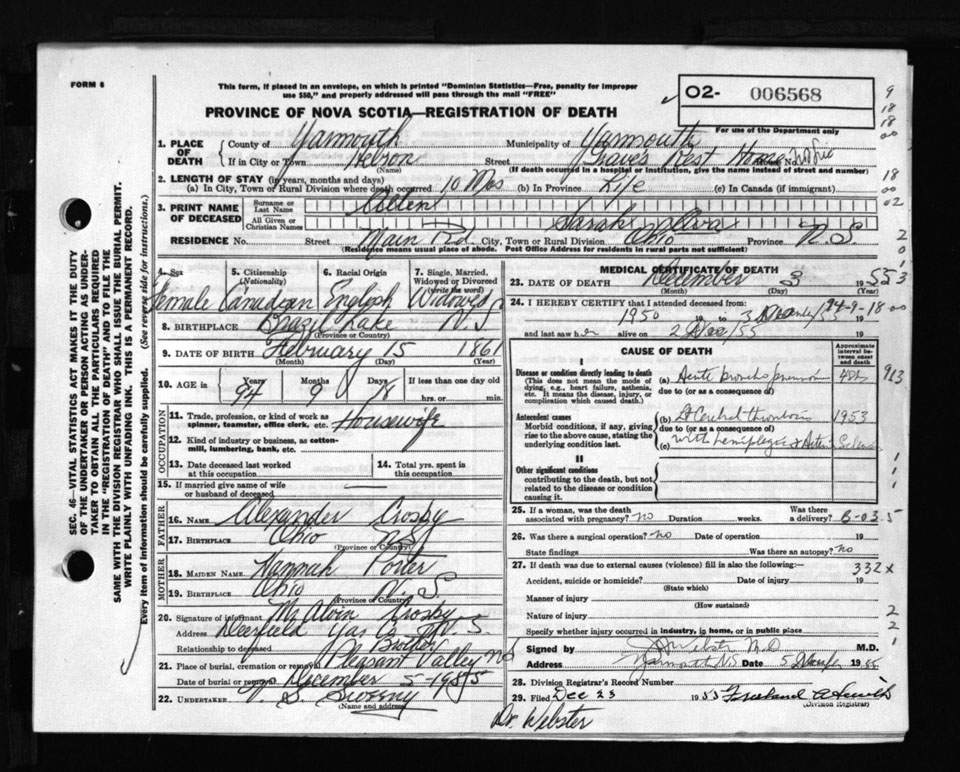 FORM 6
This form, if placed in an envelope, on which is printed "Dominion Statistics—Free, penalty for improper
use $50," and properly addressed will pass through the mail "FREE"
O2- 006568
PROVINCE OF NOVA SCOTIA—REGISTRATION OF DEATH
For use of the Department only
1. PLACE OF DEATH
County of Yarmouth Municipality of Yarmouth
If in City or Town Hebron (Name) Street Graves Rest Home No.
(If death occurred in a hospital or institution, give the name instead of street and number)
2. LENGTH OF STAY (in years, months and days)
(a) In City, Town or Rural Division where death occurred 10 Mos (b) In Province Life (c) In Canada (if immigrant)
3. PRINT NAME OF DECEASED
Surname or Last Name Allen
All Given or Christian Names Sarah Alva
RESIDENCE No. Street Main Rd. City, Town or Rural Division Ohio Province N.S.
(Residence means usual place of abode. Post Office Address for residents in rural parts not sufficient)
4. Sex Female
5. Citizenship (Nationality) Canadian
6. Racial Origin English
7. Single, Married, Widowed or Divorced (write the word) Widowed
8. BIRTHPLACE Brazil Lake N.S
(Province or Country)
9. DATE OF BIRTH February 15 1861
(Month) (Day) (Year)
10. AGE in Years 94 Months 9 Days 18 If less than one day old hrs. or min.
OCCUPATION
11. Trade, profession, or kind of work as spinner, teamster, office clerk, etc. Housewife
12. Kind of industry or business, as cotton-mill, lumbering, bank, etc.
13. Date deceased last worked at this occupation
14. Total yrs. spent in this occupation
15. If married give name of wife or husband of deceased
FATHER
16. NAME Alexander Crosby
17. BIRTHPLACE Ohio N.S.
(Province or Country)
MOTHER
18. MAIDEN NAME Hannah Porter
19. BIRTHPLACE Ohio N.S.
(Province or Country)
20. Signature of informant M. Alvin Crosby
Address Deerfield Yar Co N S
Relationship to deceased Brother
21. Place of burial, cremation or removal Pleasant Valley NS
Date of burial or removal December 5-1955
22. UNDERTAKER V. S. Sweeny
(Name and address)
MEDICAL CERTIFICATE OF DEATH
23. DATE OF DEATH December 3 1955
(Month) (Day) (Year)
24. I HEREBY CERTIFY that I attended deceased from:
94-9-18
1950 19 to 3 /55 19
and last saw her alive on 2 Dec/55 19
CAUSE OF DEATH
Approximate interval between onset and death
I
Disease or condition directly leading to death
(This does not mean the mode of dying, e.g., heart failure, asthenia, etc. It means the disease, injury, or complication which caused death.)
(a) Acute broncho pneumonia
due to (or as a consequence of)
Antecedent causes
Morbid conditions, if any, giving rise to the above cause, stating the underlying condition last.
(b) Cerebral thrombosis 1953
due to (or as a consequence of)
(c) with hemiplegia
II
Other significant conditions
contributing to the death, but not related to the disease or condition causing it.
25. If a woman, was the death associated with pregnancy? no Duration weeks. Was there a delivery?
B-03.5
26. Was there a surgical operation? no Date of operation 19
State findings Was there an autopsy? no
27. If death was due to external causes (violence) fill in also the following: 332x
Accident, suicide or homicide? Date of injury 19
(State which)
Manner of injury
(How sustained)
Nature of injury
Specify whether injury occurred in industry, in home, or in public place
Signed by Webster M.D. M.D.
Address Yarmouth N.S Date 5 1955
28. Division Registrar's Record Number
29. Filed Dec 23 1955
(Division Registrar)
Dr. Webster
SEC. 46—VITAL STATISTICS ACT MAKES IT THE DUTY
OF THE UNDERTAKER OR PERSON ACTING AS UNDER-
TAKER TO OBTAIN ALL THE PARTICULARS REQUIRED
IN THE "REGISTRATION OF DEATH" AND TO FILE THE
SAME WITH THE DIVISION REGISTRAR WHO SHALL ISSUE THE BURIAL PERMIT.
WRITE PLAINLY WITH UNFADING INK. THIS IS A PERMANENT RECORD.
Every item of information should be carefully supplied. (See reverse side for instructions.)
9
18
18
00
18
00
02
2
0
1
3
00
913
1
1
1
2
2
1